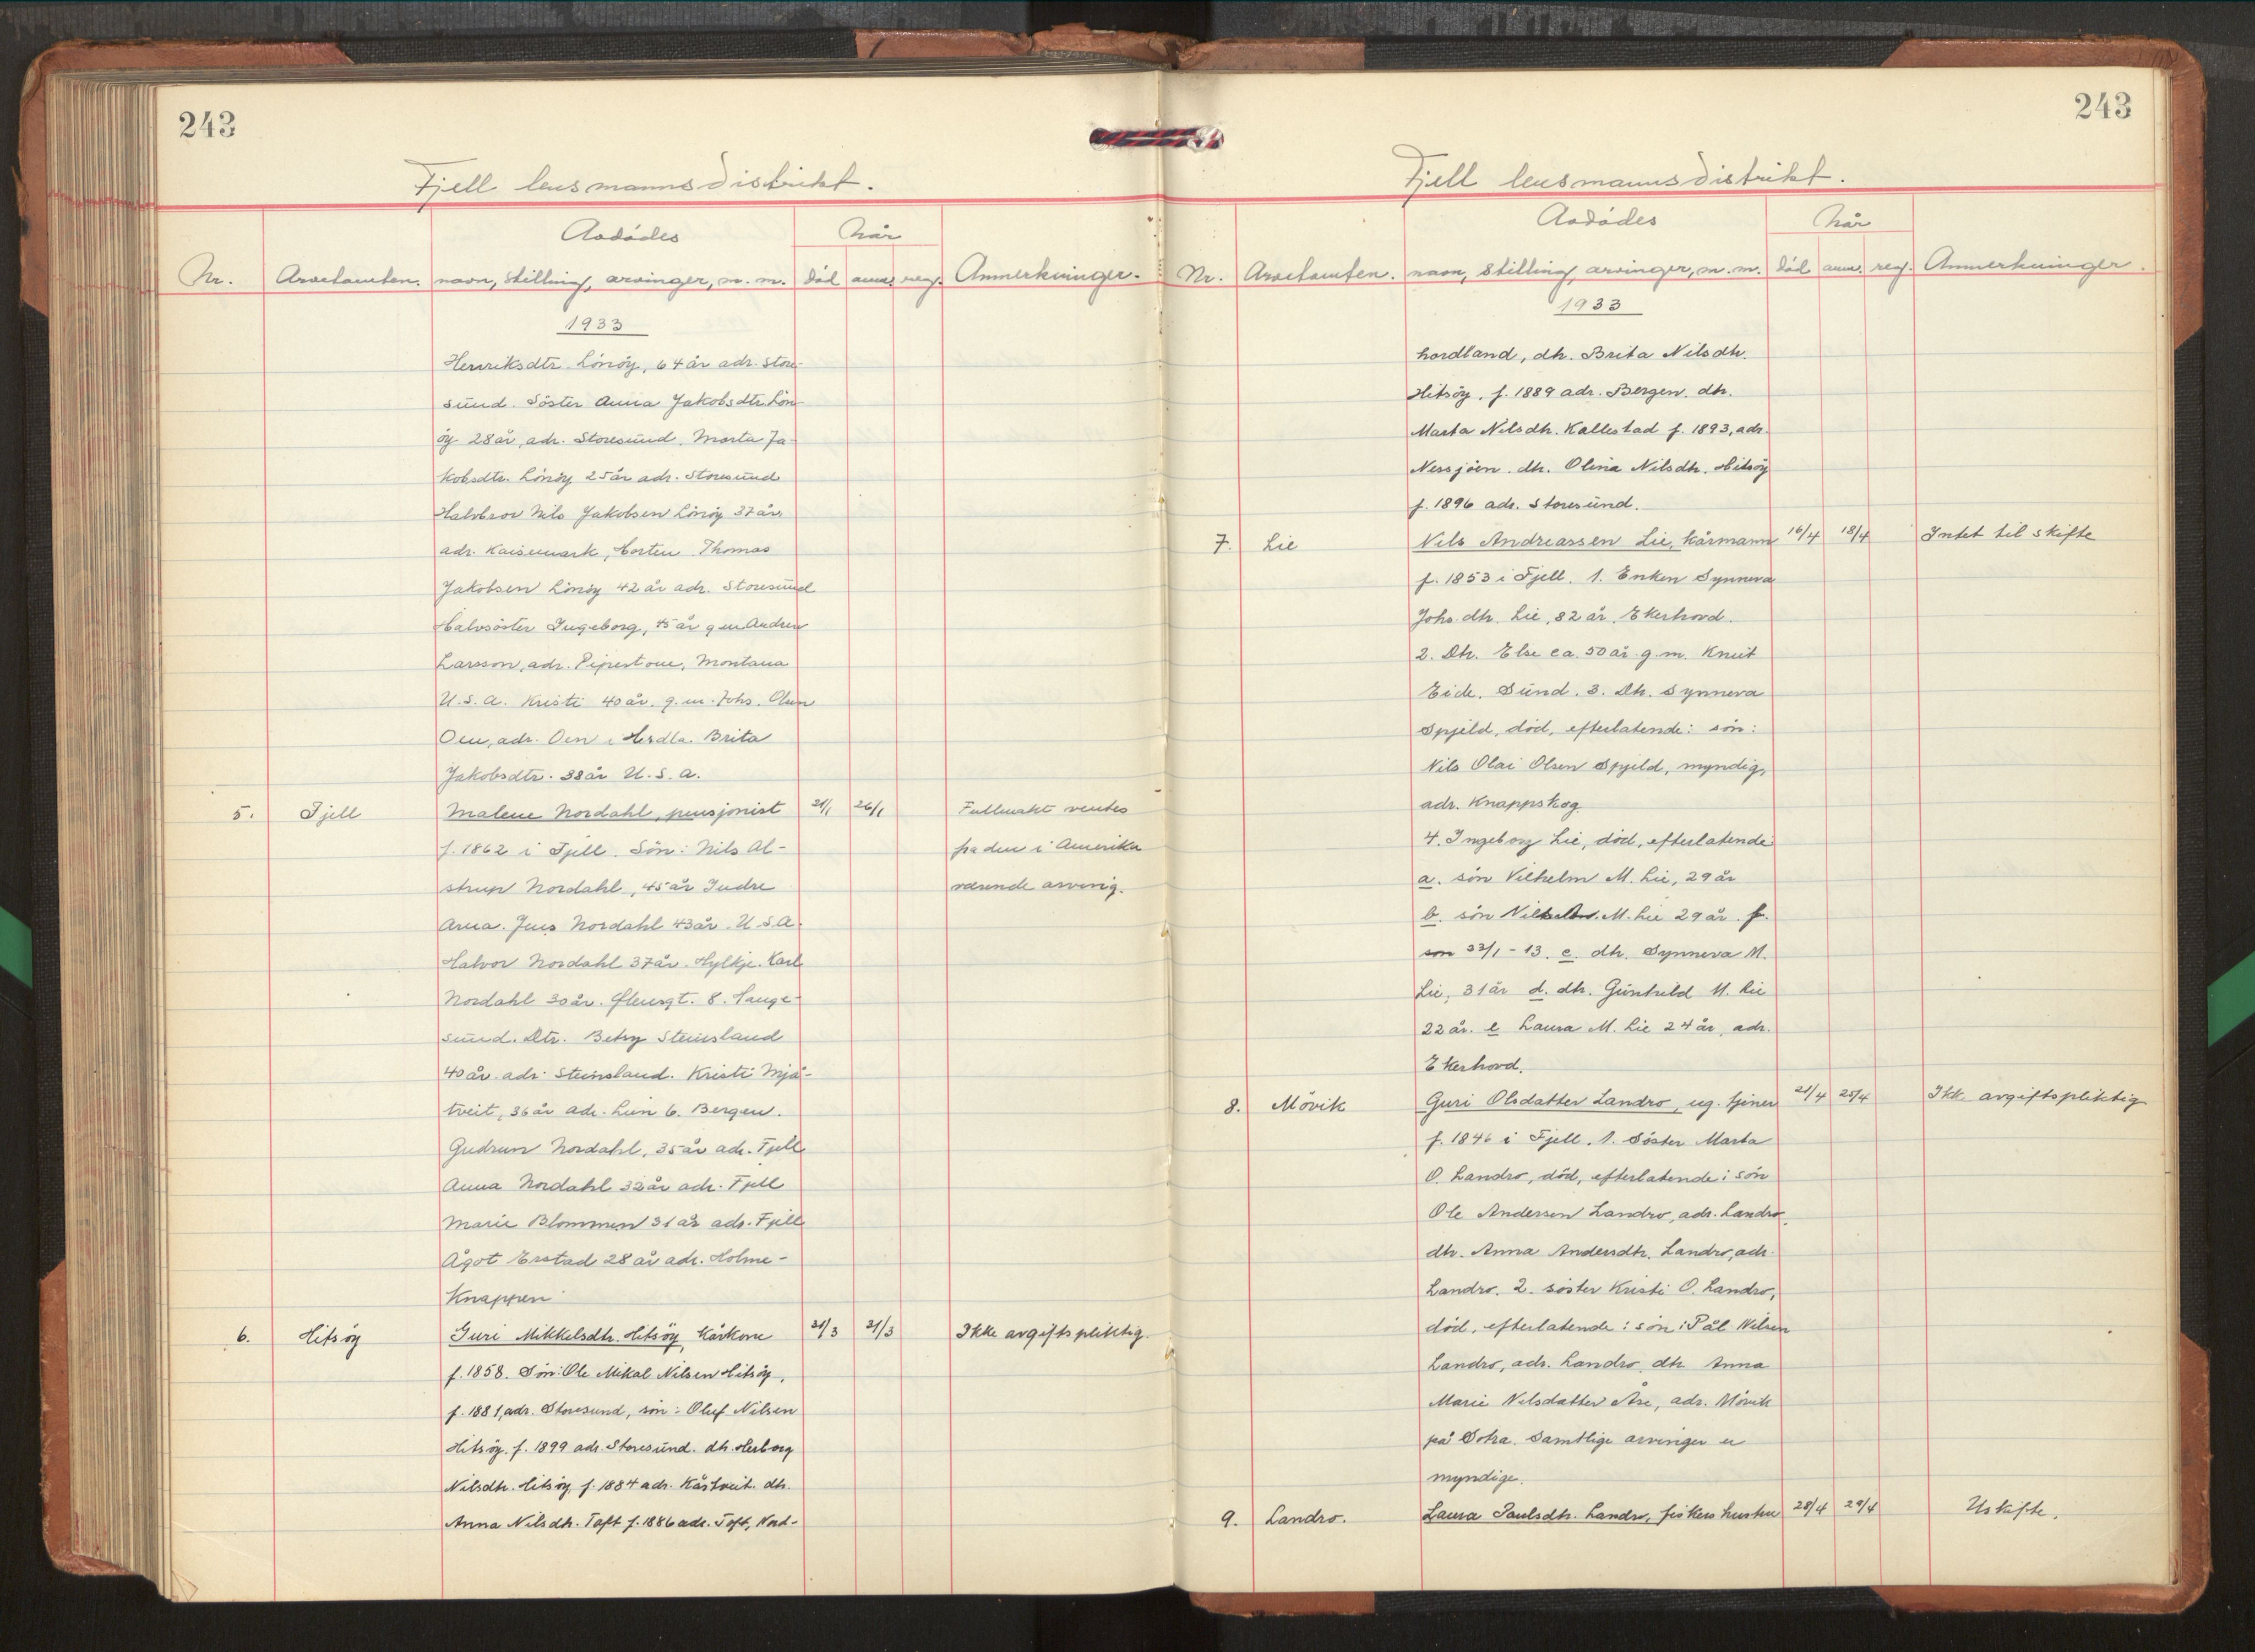 243
Fjell lensmannsdistrikt.
Avdödes
Når
Nr. Arvetomten. navn, stilling, arvinger, m. m. död anm. reg. Anmerkninger.
1933
Henriksdtr. Lönöy, 64 år adr. Store-
sund. Söster Anna Jakobsdtr. Lön-
öy 28 år, adr. Storesund. Marta Ja-
kobsdtr. Lönöy 25 år adr. Storesund
Halvbror Nils Jakobsen Lönöy 37 år,
adr. Kaisemark, Horten Thomas
Jakobsen Lönöy 42 år adr. Storesund
Halvsöster Ingeborg, 45 år g.m. Andrew
Larsson, adr. Pipestone, Montana
U.S.A. Kristi 40 år. g.m. Johs. Olsen
Oen, adr. Oen i Herdla. Brita
Jakobsdtr. 38 år U.S.A.
5. Fjell Malene Nordahl, pensjonist 21/1 26/1 Fullmakt ventes
f. 1862 i Fjell. Sön: Nils Al- fra den i Amerika
strup Nordahl, 45 år Indre værende arving.
Arna. Jens Nordahl 43 år. U.S.A.
Halvor Nordahl 37 år. Hylkje. Karl
Nordahl 30 år. 8. Hauge-
sund. Dtr. Betzy Steinsland
40 år adr. Steinsland. Kristi Mjå-
tveit, 36 år adr. Lien 6. Bergen.
Gudrun Nordahl, 35 år adr. Fjell
Anna Nordahl 32 år adr. Fjell
Marie Blommen 31 år adr. Fjell
Ågot Erstad 28 år adr. Holme-
Knappen
6. Hitsöy Guri Mikkelsdtr. Hitsöy, kårkone 21/3 31/3 Ikke avgiftspliktig.
f. 1858. Sön: Ole Mikal Nilsen Hitsöy,
f. 1881, adr. Storesund, sön: Oluf Nilsen
Hitsöy. f. 1899 adr. Storesund. dtr. Herborg
Nilsdtr. Hitsöy, f. 1884 adr. Kårtveit. dtr.
Anna Nilsdtr. Toft f. 1886 adr. Toft, Nord-
243
Fjell lensmannsdistrikt.
Avdödes
Når
Nr. Arvetomten. navn, stilling, arvinger, m. m. död anm. reg. Anmerkninger.
1933
hordland, dtr. Brita Nilsdtr.
Hitsöy, f. 1889 adr. Bergen. dtr.
Marta Nilsdtr. Kallestad f. 1893, adr.
Nessjöen. dtr. Olina Nilsdtr. Hitsöy
f. 1896 adr. Storesund.
7. Lie Nils Andreassen Lie, kårmann 16/4 18/4 Intet til skifte
f. 1853 i Fjell. 1. Enken Synneva
Johs. dtr. Lie, 82 år, Ekerhovd.
2. Dtr. Else ca. 50 år g.m. Knut
Eide, Sund. 3. Dtr. Synneva
Spjeld, död, efterlatende: sön:
Nils Olai Olsen Spjeld, myndig,
adr. Knappskog
4. Ingeborg Lie, död, efterlatende
a. sön Vilhelm M. Lie, 29 år
b. sön M. Lie 29 år. f.
1-13. c. dtr. Synneva M.
Lie, 31 år d. dtr. Gunhild M. Lie
22 år. e Laura M. Lie 24 år, adr.
Ekerhovd.
8. Mövik Guri Olsdatter Landro, ug. tjener 21/4 25/4 Ikke avgiftspliktig
f. 1846 i Fjell. 1. Söster Marta
O. Landro, död, efterlatende: sön
Ole Andersen Landro, adr. Landro,
dtr. Anna Andersdtr. Landro, adr.
Landro. 2. söster Kristi O. Landro,
död, efterlatende: sön: Pål Nilsen
Landro, adr. Landro, dtr. Anna
Marie Nilsdatter Åse, adr. Mövik
på Sotra. Samtlige arvinger er
myndige.
9. Landro. Laura Paulsdtr. Landro, fiskers hustru 28/4 29/4 Uskifte.